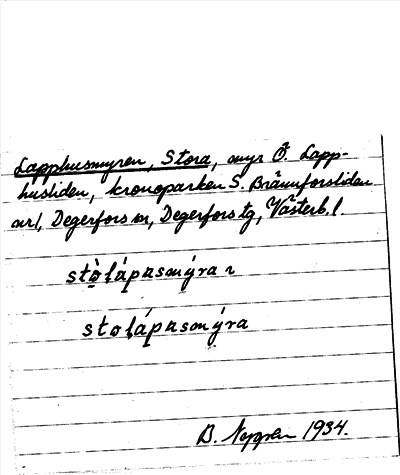 Lapphusmyren, Stora, myr Ö. Lapp-
husliden, kronoparken S. Brännforsliden
nr 1, Degerfors sn, Degerfors tg, Västerb. l.
stò̭lápasmýra
stolápasmýra
B. 1934.